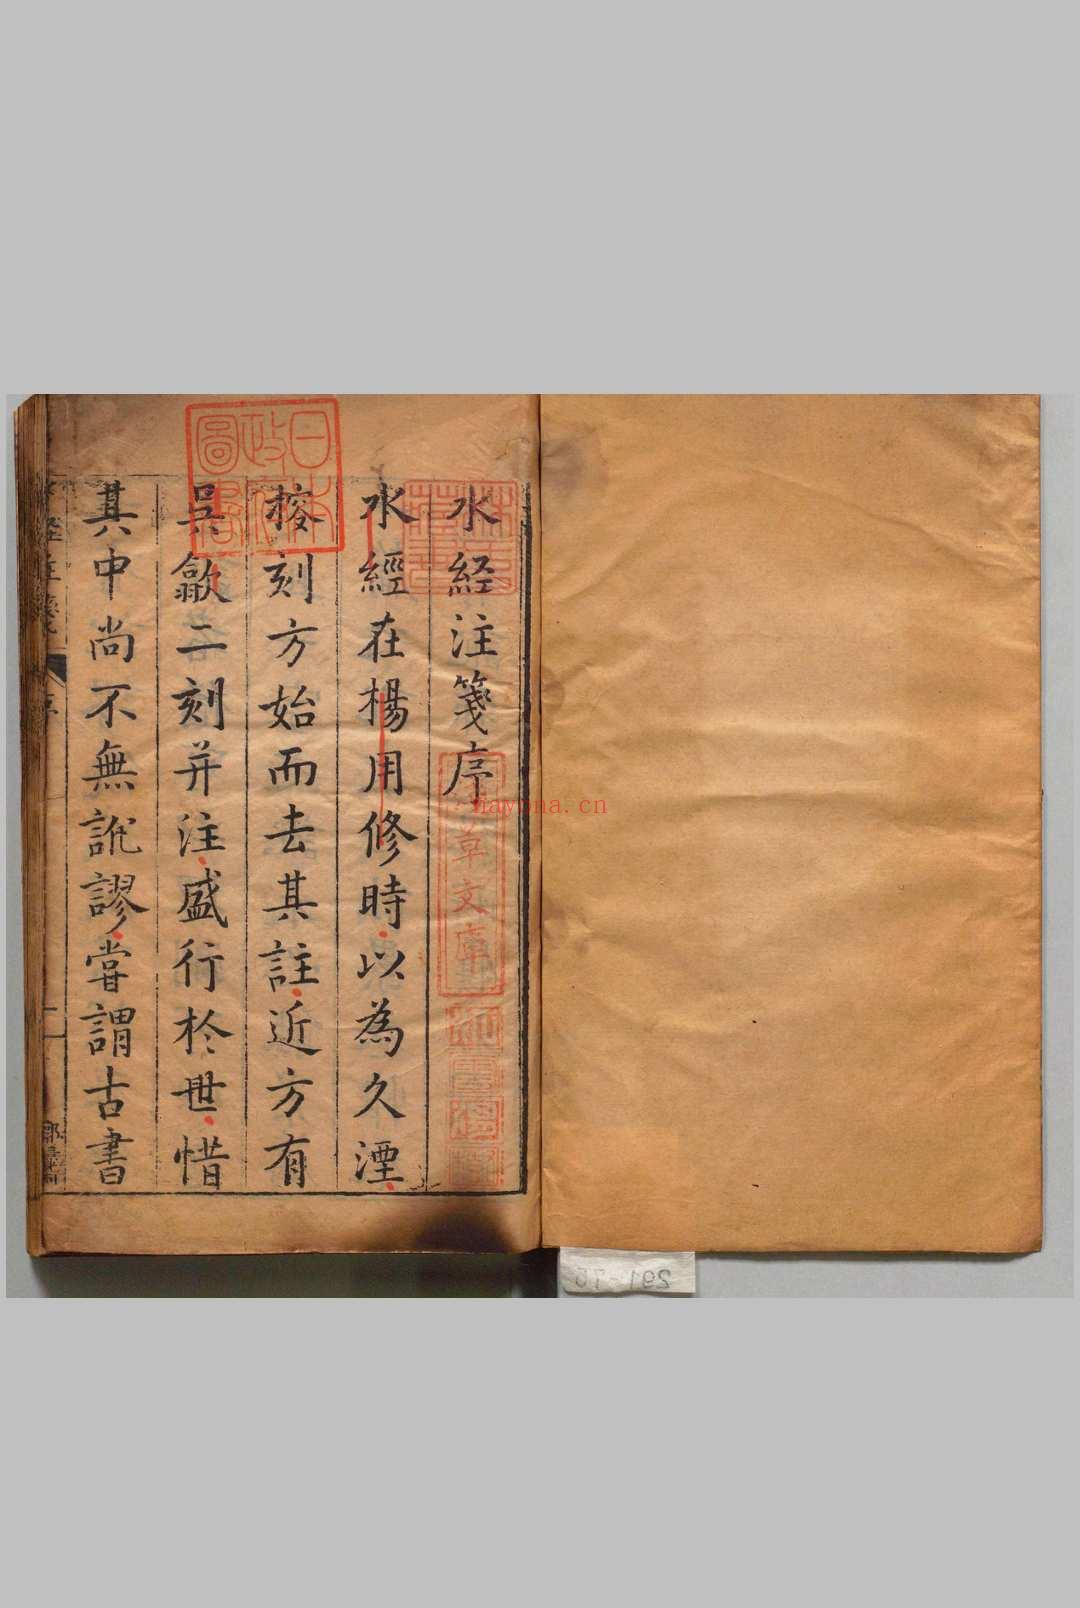 水経注箋序
水經在楊用修時以為久湮
按刻方始而去其註近方有
吳歙二刻并注盛行於世惜
其中尚不無訛謬嘗謂古書
日本
政府
圖書
nayona.cn